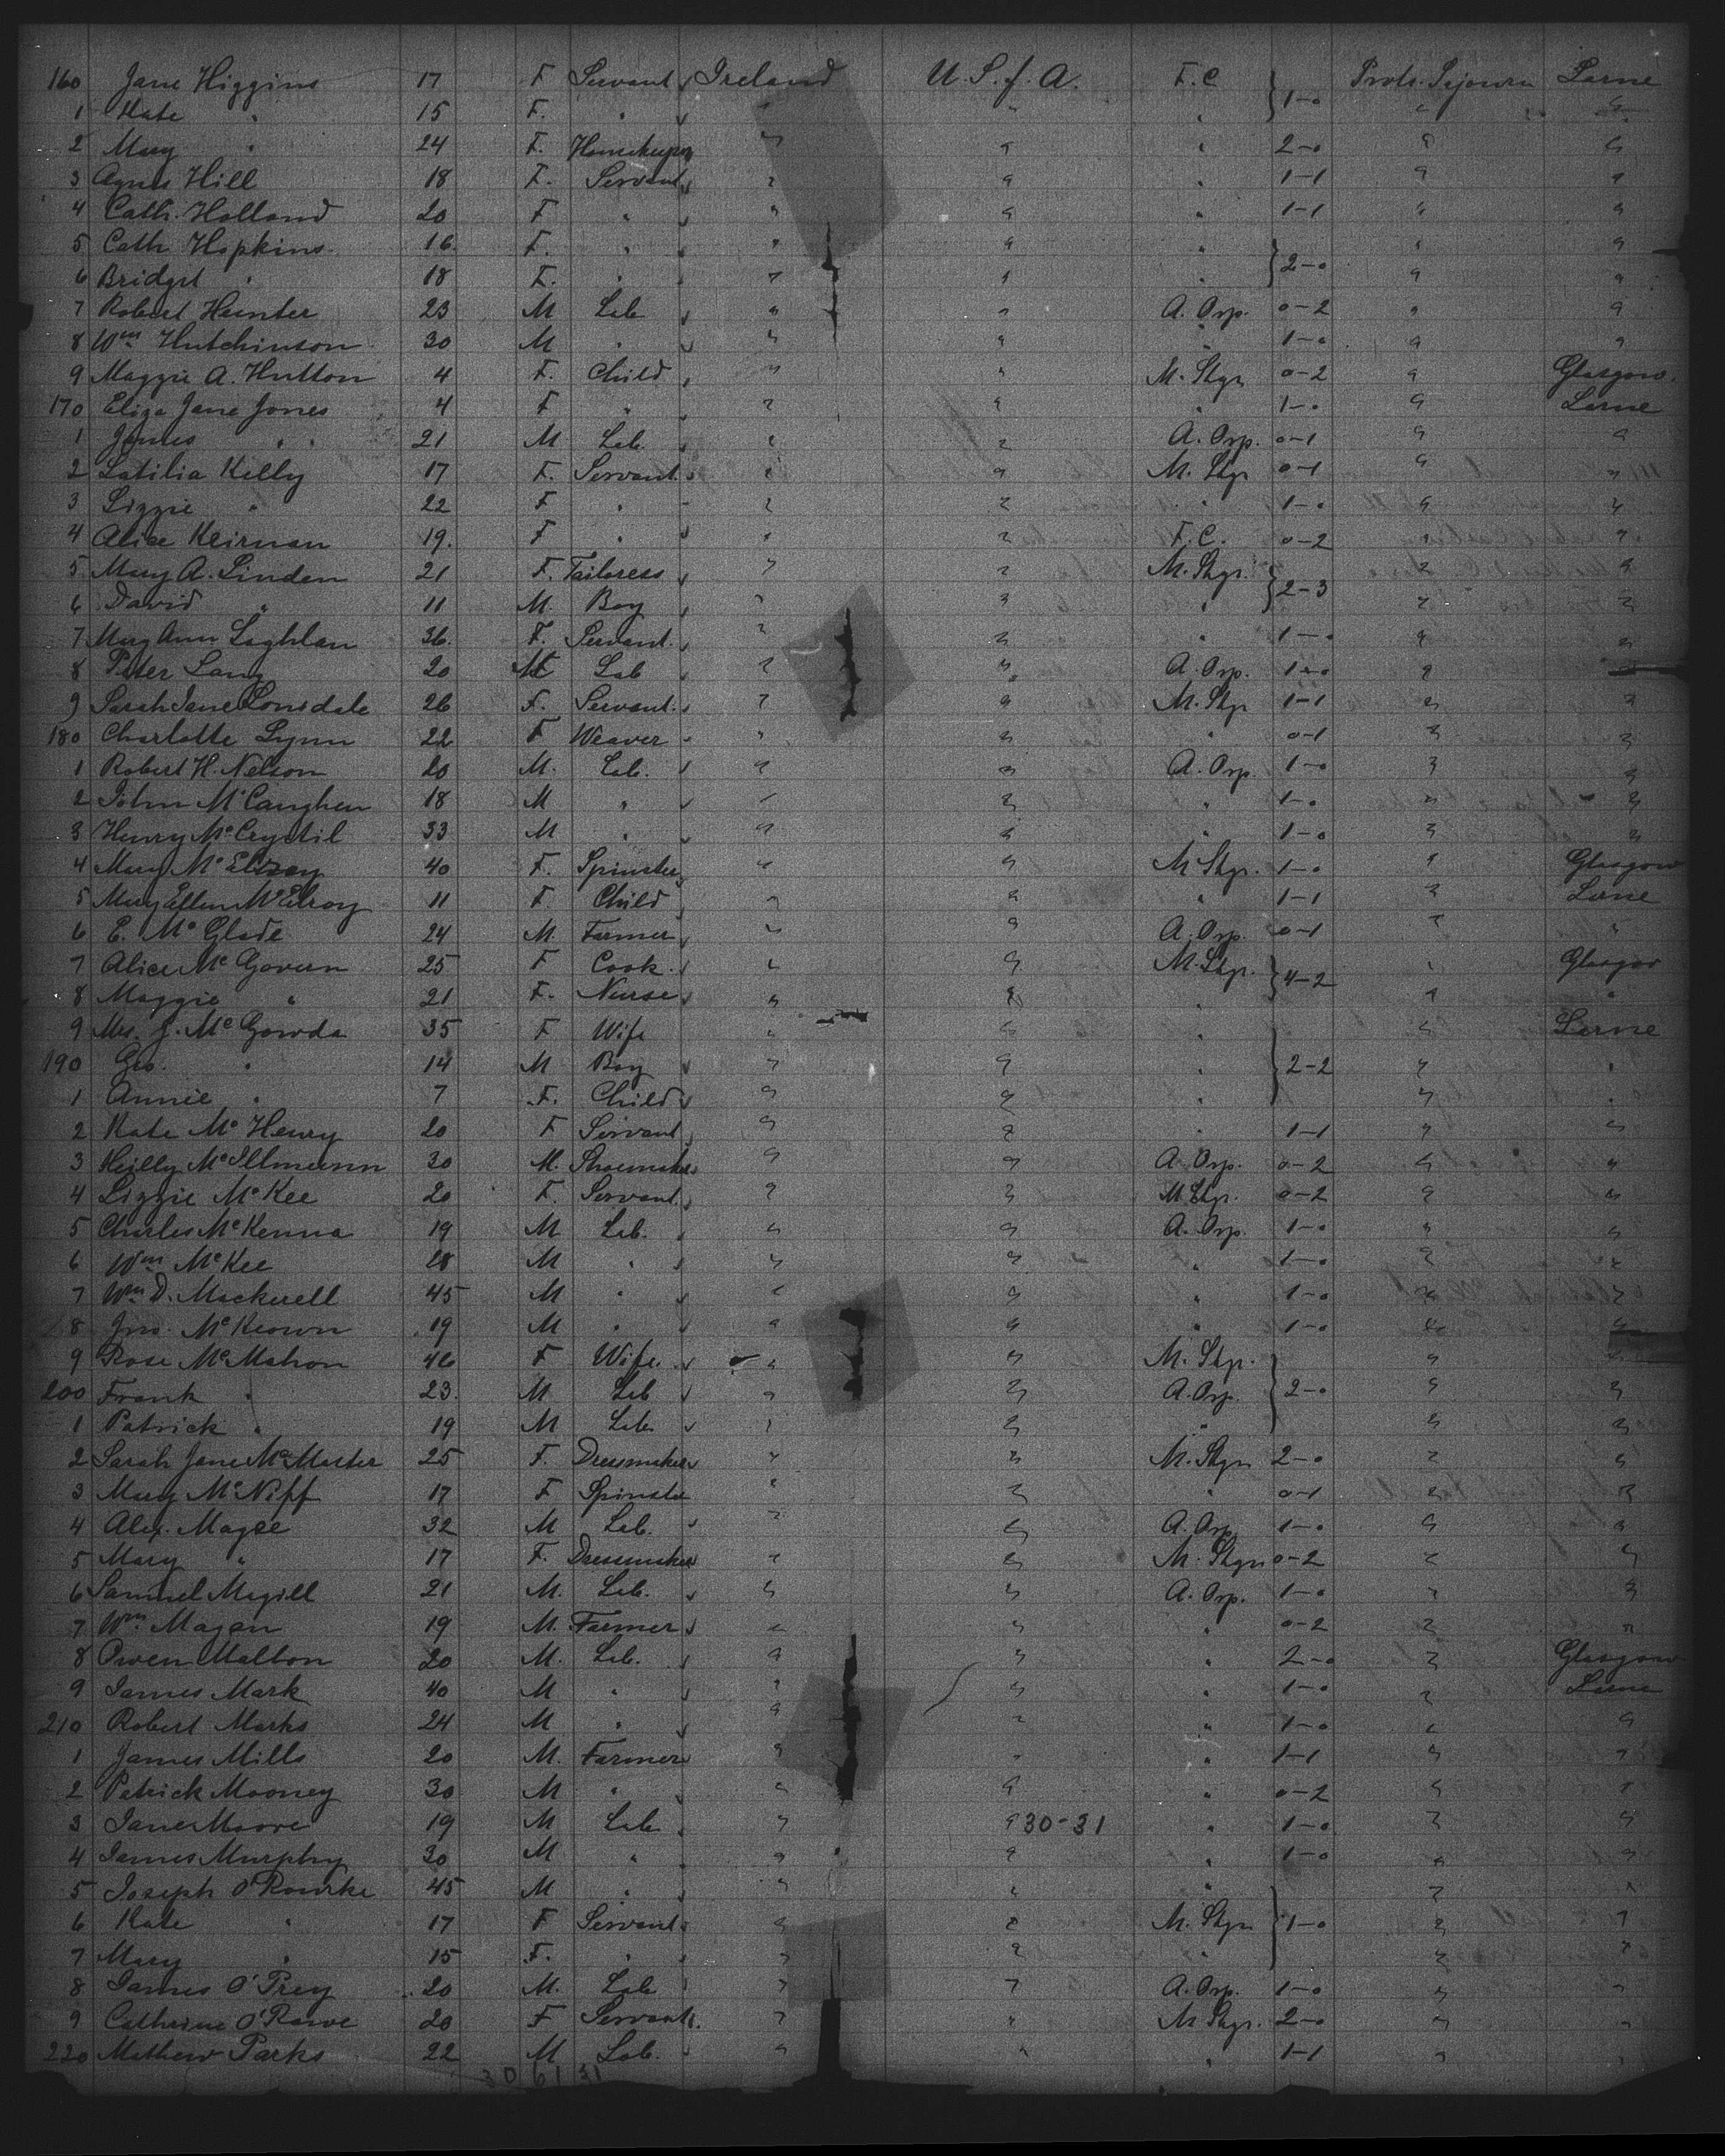 160 Jane Higgins 17 F Servant Ireland U. S. of A. F. C. } 1-0 Protr. Sejourn Larne
1 Kate " 15 F. " " " " " "
2 Mary " 24 F. Housekeeper " " " 2-0 " "
3 Agnes Hill 18 F. Servant " " " 1-1 " "
4 Cath. Holland 20 F " " " " 1-1 " "
5 Cath Hopkins 16. F. " " " " } 2-0 " "
6 Bridget " 18 F. " " " " " "
7 Robert Hunter 23 M Lab " " A. Orp. 0-2 " "
8 Wm Hutchinson 30 M " " " " 1-0 " "
9 Maggie A. Hutton 4 F. Child " " M. Stgr 0-2 " Glasgow.
170 Eliza Jane Jones 4 F " " " " 1-0 " Larne
1 James " " 21 M Lab. " " A. Orp. 0-1 " "
2 Latilia Kelly 17 F. Servant. " " M. Stgr 0-1 " "
3 Lizzie " 22 F " " " " 1-0 " "
4 Alice Keirnan 19. F " " " F. C. 0-2 " "
5 Mary A. Linden 21 F. Tailoress " " M. Stgr. } 2-3 " "
6 David " 11 M. Boy " " " " "
7 Mary Ann Loghlan 36. F. Servant. " " " 1-0 " "
8 Peter Lang 20 M Lab " " A. Orp. 1-0 " "
9 Sarah Jane Lonsdale 26 F. Servant. " " M. Stgr 1-1 " "
180 Charlotte Lynn 22 F Weaver " " " 0-1 " "
1 Robert H. Nelson 20 M. Lab. " " A. Orp. 1-0 " "
2 John McCaughen 18 M " " " " 1-0 " "
3 Henry McCrystil 33 M " " " " 1-0 " "
4 Mary McElroy 40 F. Spinster " " M Stgr. 1-0 " Glasgow
5 Mary Ellen McElroy 11 F. Child " " " 1-1 " Larne
6 E. McGlade 24 M. Farmer " " A. Orp. 0-1 " "
7 Alice McGovern 25 F Cook. " " M. Stgr. } 4-2 " Glasgow
8 Maggie " 21 F. Nurse " " " " "
9 Mrs. J. McGowda 35 F Wife " " " } 2-2 " Larne
190 Geo. " 14 M Boy " " " " "
1 Annie " 7 F. Child " " " " "
2 Kate McHenry 20 F Servant " " " 1-1 " "
3 McIllmunn 30 M. Shoemaker " " A. Orp. 0-2 " "
4 Lizzie McKee 20 F. Servant. " " M Stgr. 0-2 " "
5 Charles McKenna 19 M Lab. " " A. Orp. 1-0 " "
6 Wm McKee 28 M " " " " 1-0 " "
7 Wm D. Mackrell 45 M " " " " 1-0 " "
8 Jno. McKeown 19 M " " " " 1-0 " "
9 Rose McMahon 46 F Wife. " " M. Stgr. } 2-0 " "
200 Frank " 23. M. Lab " " A. Orp. " "
1 Patrick " 19 M Lab " " " " "
2 Sarah Jane McMaster 25 F. Dressmaker " " M. Stgr 2-0 " "
3 Mary McNiff 17 F Spinster " " " 0-1 " "
4 Alex. Magee 32 M Lab. " " A. Orp 1-0 " "
5 Mary " 17 F. Dressmaker " " M. Stgr 0-2 " "
6 Samuel Magill 21 M. Lab. " " A. Orp. 1-0 " "
7 Wm. Magan 19 M. Farmer " " " 0-2 " "
8 Owen Mallon 20 M. Lab. " " " 2-0 " Glasgow
9 James Mark 40 M " " " " 1-0 " Larne
210 Robert Marks 24 M " " " " 1-0 " "
1 James Mills 20 M. Farmer " " " 1-1 " "
2 Patrick Mooney 30 M " " " " 0-2 " "
3 Jane Moore 19 M Lab " " 30-31 " 1-0 " "
4 James Murphy 30 M " " " " 1-0 " "
5 Joseph O'Rourke 45 M " " " " } 1-0 " "
6 Kate " 17 F Servant " " M. Stgr " "
7 Mary " 15 F. " " " " " "
8 James O'Prey 20 M. Lab " " A. Orp. 1-0 " "
9 Cathrine O'Rawe 20 F Servant. " " M Stgr. 2-0 " "
220 Mathew Parks 22 M Lab. " " " 1-1 " "
30 61 31